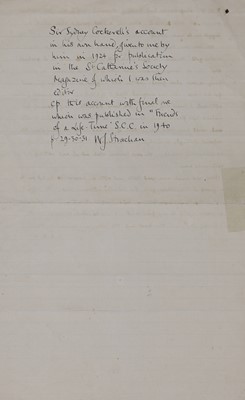 Sir Sydney Cockerell's account
in his own hand, given to me by
him in 1924 for publication
in the St Catharine's Society
Magazine of which I was then
Editor
cp this account with final one
which was published in "Friends
of a Life-Time" S.C.C. in 1940
p. 29-30-31 W J Strachan